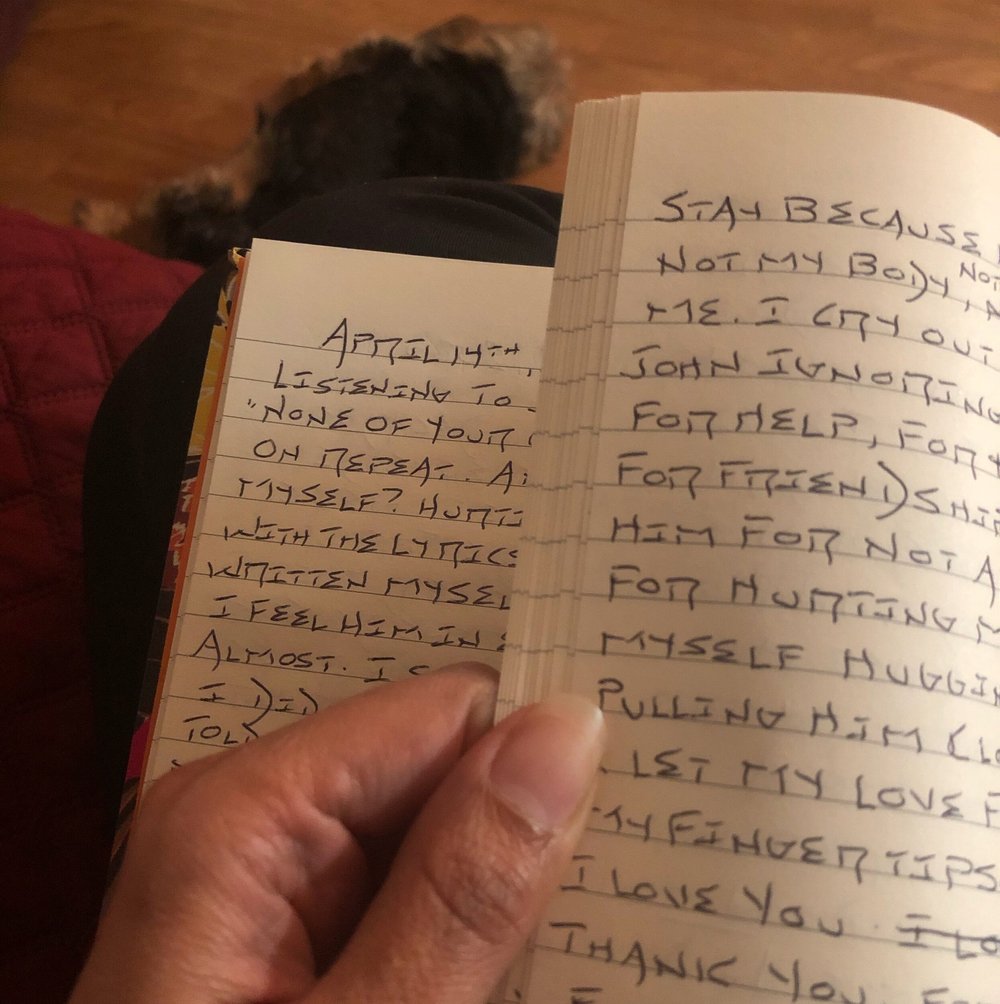 APRIL 14TH,
LISTENING TO
"NONE OF YOUR
ON REPEAT. A
MYSELF? HURTI
WITH THE LYRICS
WRITTEN MYSEL
I FEEL HIM IN
ALMOST. I
I DID
TOLD
STAY BECAUSE
NOT MY BODY, NOT
ME. I CRY OUT
JOHN IGNORING
FOR HELP, FOR
FOR FRIENDSHIP
HIM FOR NOT A
FOR HURTING M
MYSELF HUGGIN
PULLING HIM CLO
. LET MY LOVE F
MY FINGER TIPS
I LOVE YOU. I LO
THANK YOU